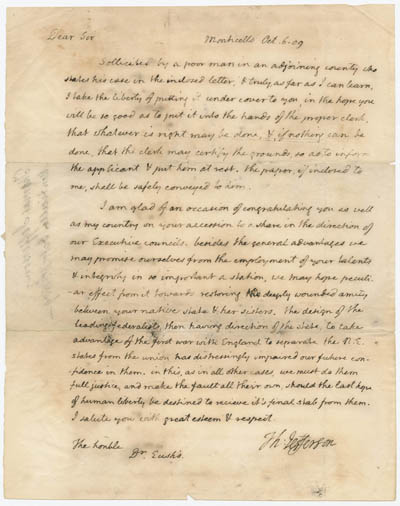 Dear Sir
Monticello Oct. 6. 09
Sollicited by a poor man in an adjoining county who
states his case in the inclosed letter, & truly as far as I can learn,
I take the liberty of putting it under cover to you, in the hope you
will be so good as to put it into the hands of the proper clerk,
that whatever is right may be done, & if nothing can be
done, that the clerk may certify the grounds, so as to inform
the applicant & put him at rest. the paper, if inclosed to
me, shall be safely conveyed to him.
I am glad of an occasion of congratulating you as well
as my country on your accession to a share in the direction of
our Executive councils. besides the general advantages we
may promise ourselves from the employment of your talents
& integrity in so important a station, we may hope peculi-
-ar effect from it towards restoring the deeply wounded amity
between your native state & her sisters. the design of the
leading federalists, then having direction of the state, to take
advantage of the first war with England to separate the N.E.
states from the union has distressingly impaired our future con-
-fidence in them. in this, as in all other cases, we must do them
full justice, and make the fault all their own, should the last hope
of human liberty be destined to recieve it's final stab from them.
I salute you with great esteem & respect.
Th: Jefferson
The honble
Dr. Eustis.